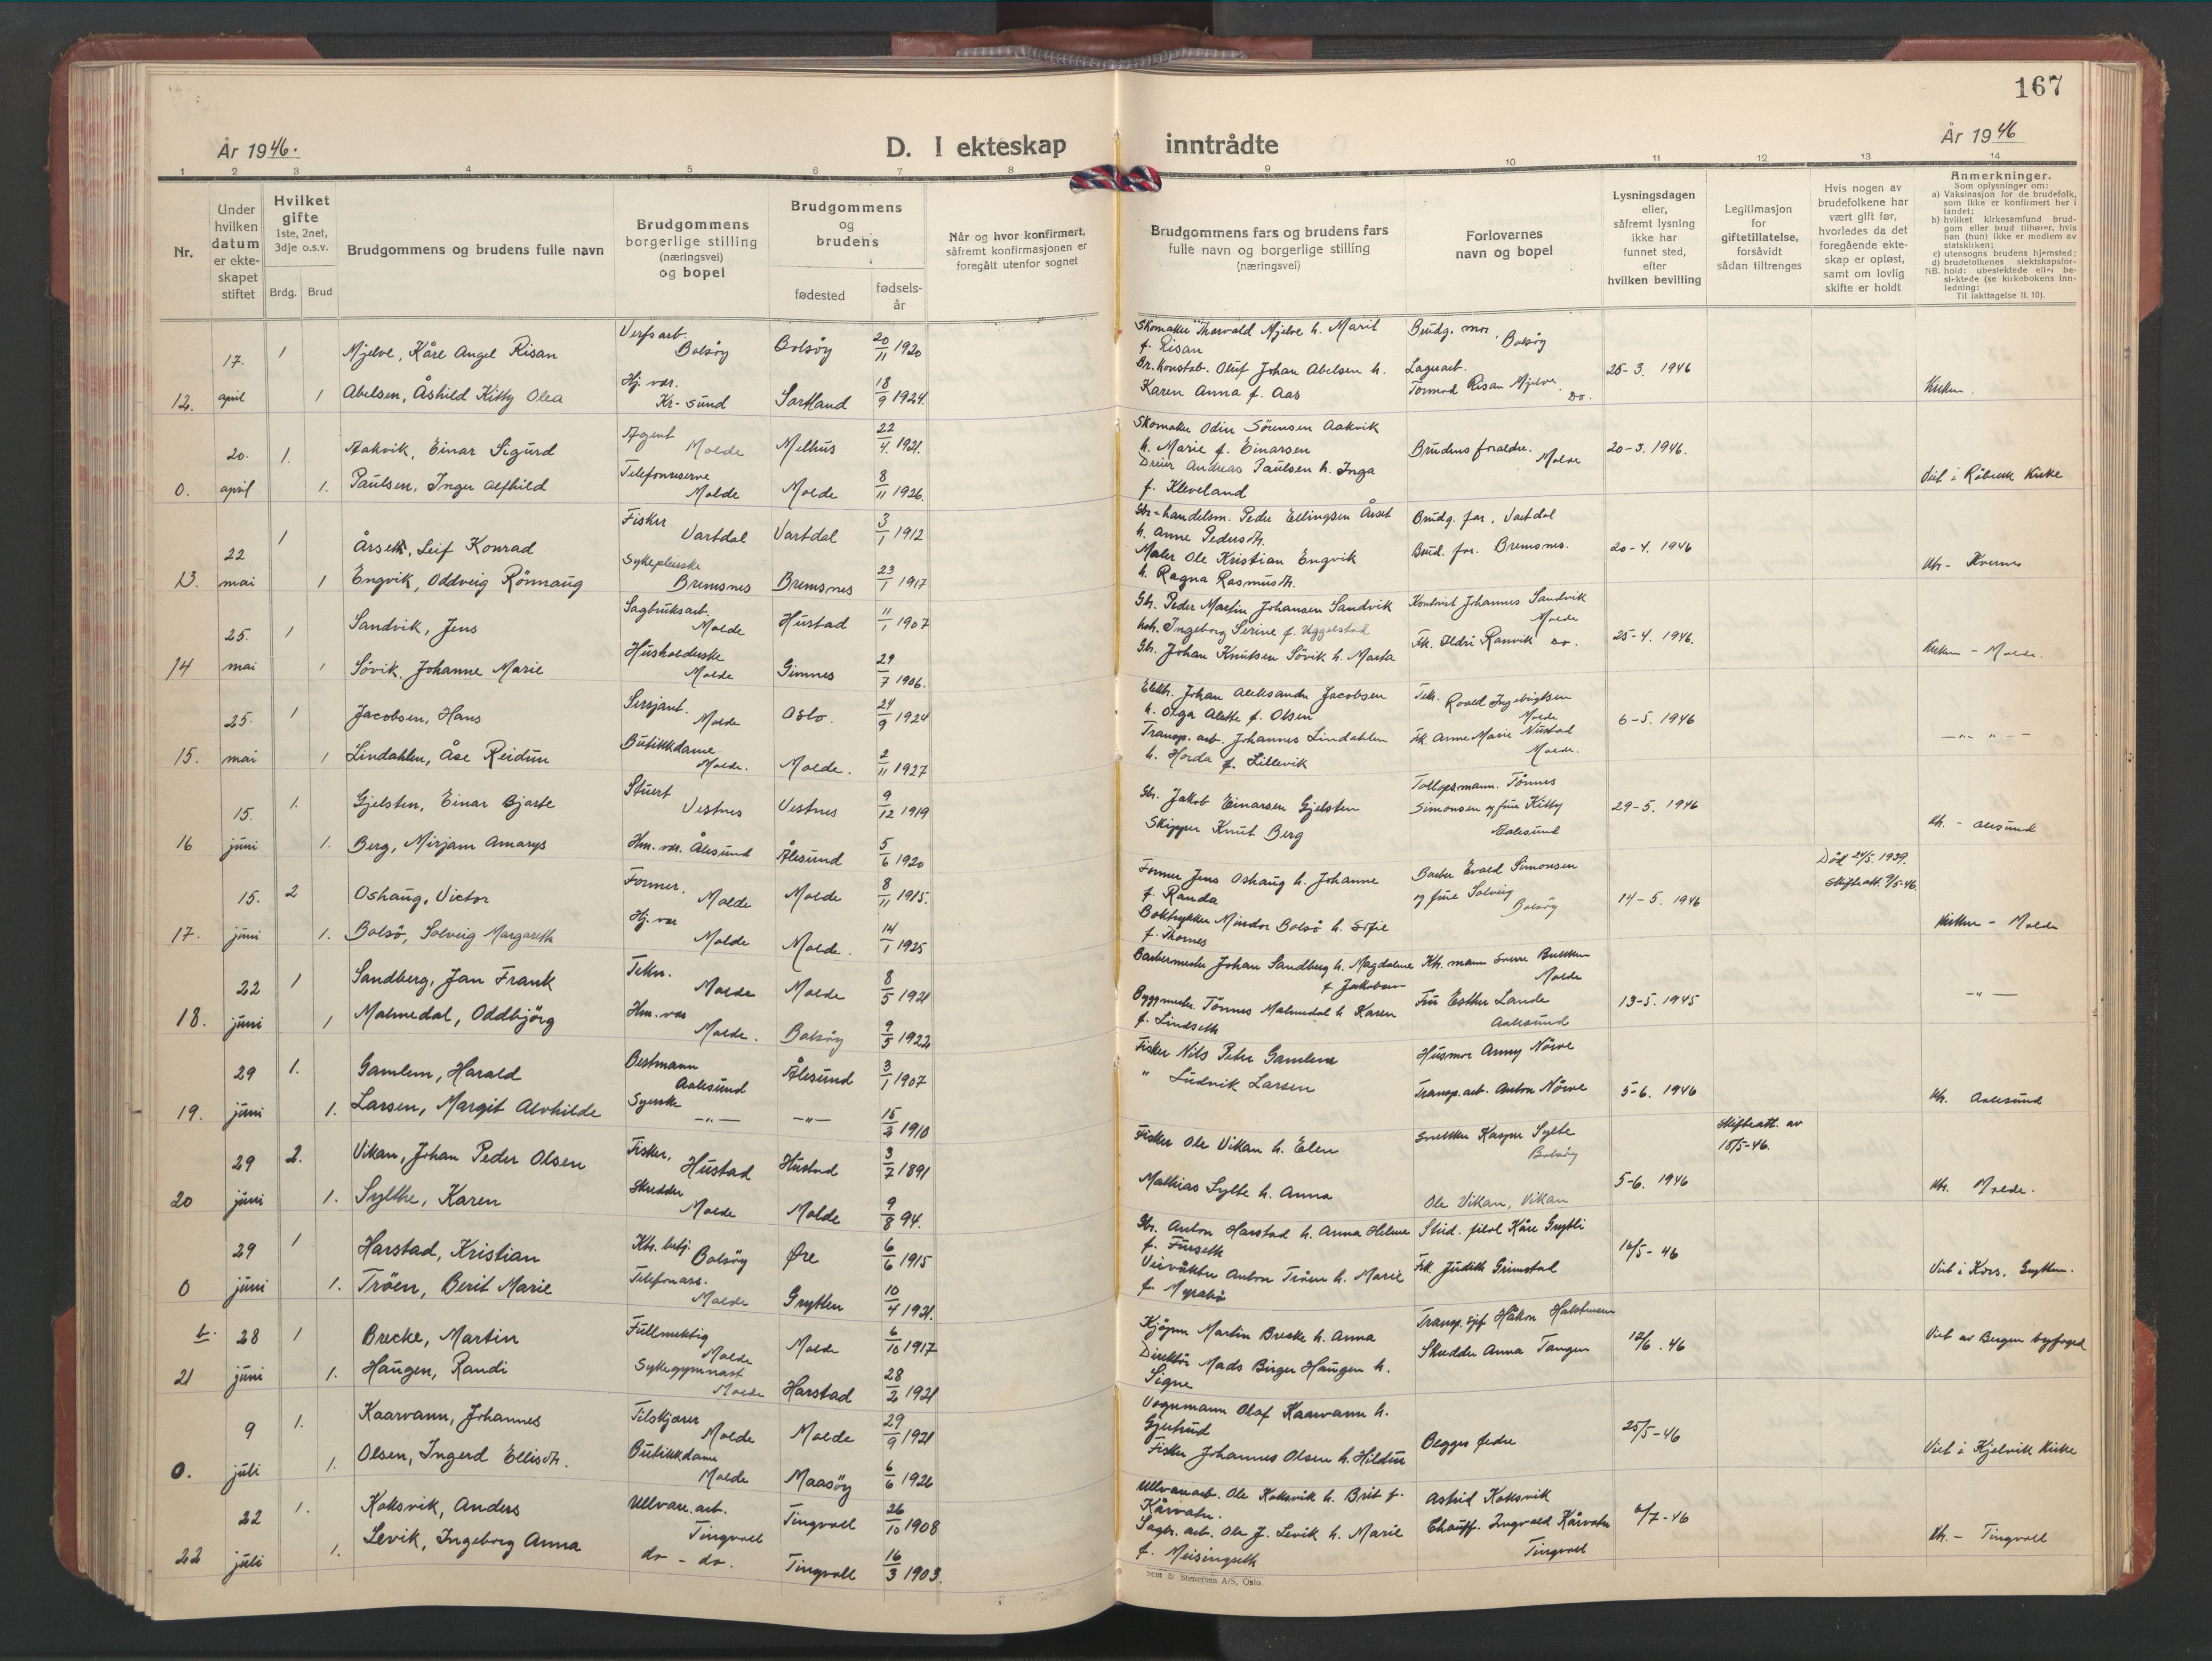 167
År 1946.
D. I ekteskap inntrådte
År 1946
1 2 3 4 5 6 7 8 9 10 11 12 13 14
Nr.
Under hvilken datum er ekteskapet stiftet
Hvilket gifte
1ste, 2net, 3dje o.s.v.
Brdg. Brud
Brudgommens og brudens fulle navn
Brudgommens borgerlige stilling (næringsvei) og bopel
Brudgommens og brudens
fødested
fødsels-år
Når og hvor konfirmert, såfremt konfirmasjonen er foregått utenfor sognet
Brudgommens fars og brudens fars fulle navn og borgerlige stilling (næringsvei)
Forlovernes navn og bopel
Lysningsdagen eller, såfremt lysning ikke har funnet sted, efter hvilken bevilling
Legitimasjon for giftetillatelse, forsåvidt sådan tiltrenges
Hvis nogen av brudefolkene har vært gift før, hvorledes da det foregående ekteskap er opløst, samt om lovlig skifte er holdt
Anmerkninger.
Som oplysninger om:
a) Vaksinasjon for de brudefolk, som ikke er konfirmert her i landet;
b) hvilket kirkesamfund brudgom eller brud tilhører, hvis han (hun) ikke er medlem av statskirken;
c) utensogns brudens hjemsted;
d) brudefolkenes slektskapsforhold: ubeslektede eller beslektede (se kirkebokens innledning:
NB. Til iakttagelse II. 10).
17. 1 Mjelve, Kåre Angel Risan Verfsarb. Bolsøy Bolsøy 20/11 1920 Skomaker Thorvald Mjelve h. Marit f. Risan Brudg. mor, Bolsøy
12. april 1 Abelsen, Åshild Kitty Olea Hj. vær. Kr-sund Sortland 18/9 1924. Br. Konstab. Oluf Johan Abelsen h. Karen Anna f. Aas Lagerarb. Tormod Risan Mjelve do. 25-3. 1946 Kirken.
20. 1. Aakvik, Einar Sigurd Agent Molde Melhus 22/4. 1921. Skomaker Odin Sörensen Aakvik h. Marie f. Einarsen Brudens foreldre. Molde 20-3. 1946.
0. april 1. Paulsen, Inger Alfhild Telefonreserve Molde Molde 8/11 1926. Dreier Andreas Paulsen h. Inga f. Kleveland Viet i Röbekk Kirke
22 1 Årseth, Leif Konrad Fisker Vartdal Vartdal 3/1 1912 Gbr-handelsm. Peder Ellingsen Årset h. Anne Pedersdt. Brudg. far, Vartdal 20-4. 1946
13. mai 1 Engvik, Oddveig Rönnaug Sykepleierske Bremsnes Bremsnes 23/1 1917 Maler Ole Kristian Engvik h. Ragna Rasmusdt. Brud. far. Bremsnes. Utr- Kvernes
25. 1 Sandvik, Jens Sagbruksarb. Molde Hustad 11/1 1907 Gbr. Peder Martin Johansen Sandvik h. Ingeborg Serine f. Uggelstad Johannes Sandvik Molde 25-4. 1946.
14 mai 1 Sövik, Johanne Marie Husholderske Molde Gimnes 29/7 1906. Gbr. Johan Knutsen Sövik h. Marta Frk. Eldri Ranvik do. Kirken - Molde.
25. 1 Jacobsen, Hans Sersjant. Molde Oslo. 24/9 1924 Elektr. Johan Aleksander Jacobsen h. Olga Alette f. Olsen Tekn. Roald Ingebrigtsen Molde 6-5. 1946
15. mai 1 Lindahlen, Åse Reidun Butikkdame Molde. Molde. 2/11 1927 Transp. arb. Johannes Lindahlen h. Horda f. Lillevik Frk. Anne Marie Nustad Molde. -"-"--
15. 1. Gjelsten, Einar Bjarte Stuert Vestnes Vestnes 9/12 1919 Gbr. Jakob Einarsen Gjelsten Tollopsmann. Tönnes Simonsen og frue Kitty Aalesund 29-5. 1946
16 juni 1. Berg, Mirjam Amarys Hm. vær. Ålesund Ålesund 5/6 1920 Skipper Knut Berg Utr. - Ålesund
15. 2 Oshaug, Victor Former. Molde Molde 8/11 1915. Former Jens Oshaug h. Johanne f. Randa Barber Evald Simonsen og frue Solveig Bolsøy 14-5. 1946 Död 24/5. 1939. Skifteatt. 9/5-46.
17. juni 1. Bolsö, Solveig Margareth Hj. vær Molde Molde. 14/1 1925 Boktrykker Mindor Bolsö h. Sofie f. Thornes Kirken - Molde
22 1 Sandberg, Jan Frank Tekn. Molde Molde 8/5 1921 Barbermester Johan Sandberg h. Magdalene f. Jakobsen Ktr. mann Sverre Molde 13-5. 1945
18. juni 1 Malmedal, Oddbjörg Hm. vær Molde. Bolsøy 9/5 1922 Byggmester Tönnes Malmedal h. Karen f. Lindseth Fru Esther Lande Aalesund -"-
29 1. Gamlem, Harald Bestmann Aalesund Ålesund 3/1 1907 Fisker Nils Peter Gamlem Husmor Anny Nörve
19. juni 1. Larsen, Margit Alvhilde Syerske -"- -"- 15/2 1910 " Ludvik Larsen Transp. arb. Anton Nörve 5-6. 1946 Utr. Aalesund
29 2. Vikan, Johan Peder Olsen Fisker, Hustad Hustad 3/7 1891 Fisker Ole Vikan h. Elen Snekker Kasper Sylte Bolsøy Skifteatt. av 18/5-46.
20 juni 1. Sylthe, Karen Skredder Molde Molde 9/8 94. Mathias Sylte h. Anna Ole Vikan, Vikan 5-6. 1946 Utr. Molde.
29 1 Harstad, Kristian Ktr. betj. Bolsøy Øre 6/6 1915 Gbr. Anton Harstad h. Anna Helene f. Furseth Stud. filol Kåre Grytli 16/5-46
0 juni 1. Tröen, Berit Marie Telefonass. Molde Grytten 10/4 1921. Veivokter Anton Tröen h. Marie f. Myrabö Frk. Judith Grimstad Viet i Kors, Grytten.
28 1 Brecke, Martin Fullmektig Molde Molde 6/10 1917 Kjöpm Martin Brecke h. Anna Transp. sjef Håkon 12/6. 46 Viet av Bergen byfoged
21 juni 1. Haugen, Randi Sykegymnast Molde Harstad 28/2 1921 Direktör Mads Birger Haugen h. Signe Skredder Anna Tangen
9 1. Kaarvann, Johannes Tilskjærer Molde Molde 29/9 1921 Vognmann Olaf Kaarvann h. Gjertrud 25/5-46
0. juli 1. Olsen, Ingerd Ellisdt. Butikkdame Molde Maasöy 6/6 1926 Fisker Johannes Olsen h. Hildur Begges fedre Viet i Kjelvik Kirke
22 1. Koksvik, Anders Ullvare. arb. Tingvoll Tingvoll 26/10 1908 Ullvarearb. Ole Koksvik h. Brit f. Kårvatn. Astrid Koksvik
22 juli 1. Levik, Ingeborg Anna do - do. Tingvoll 16/3 1903. Sagbr. arb. Ole J. Levik h. Marie f. Meisingseth Chauff. Ingvald Kårvatn Tingvoll 6/7-46 Utr. - Tingvoll
Sem & Stenersen A/S, Oslo.